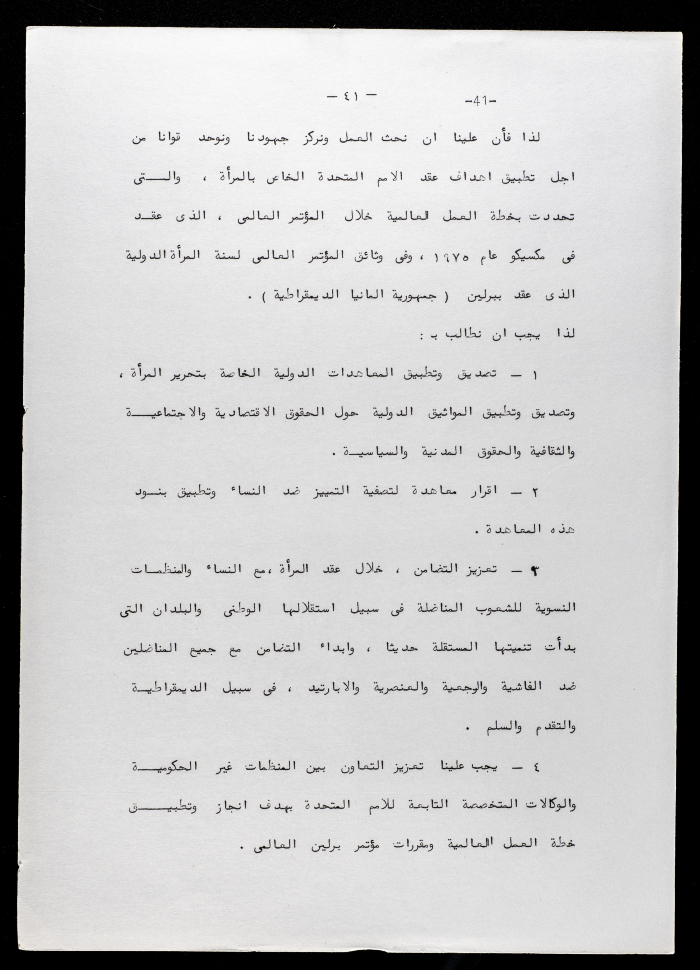 — ٤١ — -41-
لذا فأن علينا ان نحث العمل ونركز جهودنا ونوحد قوانا من
اجل تطبيق اهداف عقد الامم المتحدة الخاص بالمرأة ، والـــتى
تحددت بخطة العمل العالمية خلال المؤتمر العالمى ، الذى عقـد
فى مكسيكو عام ١٩٧٥ ، وفى وثائق المؤتمر العالمى لسنة المرأة الدولية
الذى عقد ببرلين ( جمهورية المانيا الديمقراطية ) .
لذا يجب ان نطالب بـ :
١ – تصديق وتطبيق المعاهدات الدولية الخاصة بتحرير المرأة ،
وتصديق وتطبيق المواثيق الدولية حول الحقوق الاقتصادية والاجتماعيـــة
والثقافية والحقوق المدنية والسياسيــة .
٢ – اقرار معاهدة لتصفية التمييز ضد النساء وتطبيق بنــود
هذه المعاهدة .
٣ – تعزيز التضامن ، خلال عقد المرأة ،مع النساء والمنظمـات
النسوية للشعوب المناضلة فى سبيل استقلالها الوطنى والبلدان التى
بدأت تنميتها المستقلة حديثا ، وابداء التضامن مع جميع المناضلين
ضد الفاشية والرجعية والعنصرية والابارتيد ، فى سبيل الديمقراطيــة
والتقدم والسلم .
٤ – يجب علينا تعزيز التعاون بين المنظمات غير الحكوميـــة
والوكالات المتخصصة التابعة للأمم المتحدة بهدف انجاز وتطبيــــق
خطة العمل العالمية ومقررات مؤتمر برلين العالمى .